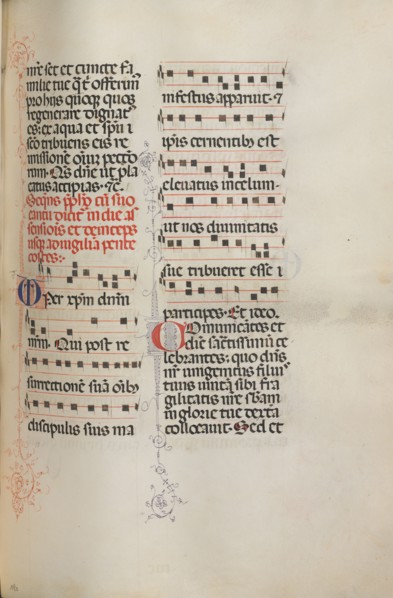 nr̄e set et cuncte fa
milie tue q̄s offerim
pro hiis quoq̨ quos
regenerare dignat
es: ex aqua et sp̄u s
cō tribuens eis re
missionē oīm pecto
rum. Qs dn̄e ut pla
catus accipias. ⁊c.
Sequēs p̄fo cū suo
cantu dicit̄ in die as
sensiois et deinceps
usq̨ ad vigiliā pente
costes:
Per xp̄m dn̄m
nr̄m. Qui post re
surrectionē suā oīb9
discipulis suis ma
nifestus apparuit. ⁊
ip̄is cernentib9 est
eleuatus in celum.
ut nos diuinitatis
sue tribueret esse
participes. Et ideo.
Comunicātes et
diē sac̄tissimū ce
lebrantes: quo dn̄s
nr̄ unigenitus filiu
tuus unitā sibi fra
gilitatis nr̄e sb̄am
in glorie tue dextā
collocauit. Sed et